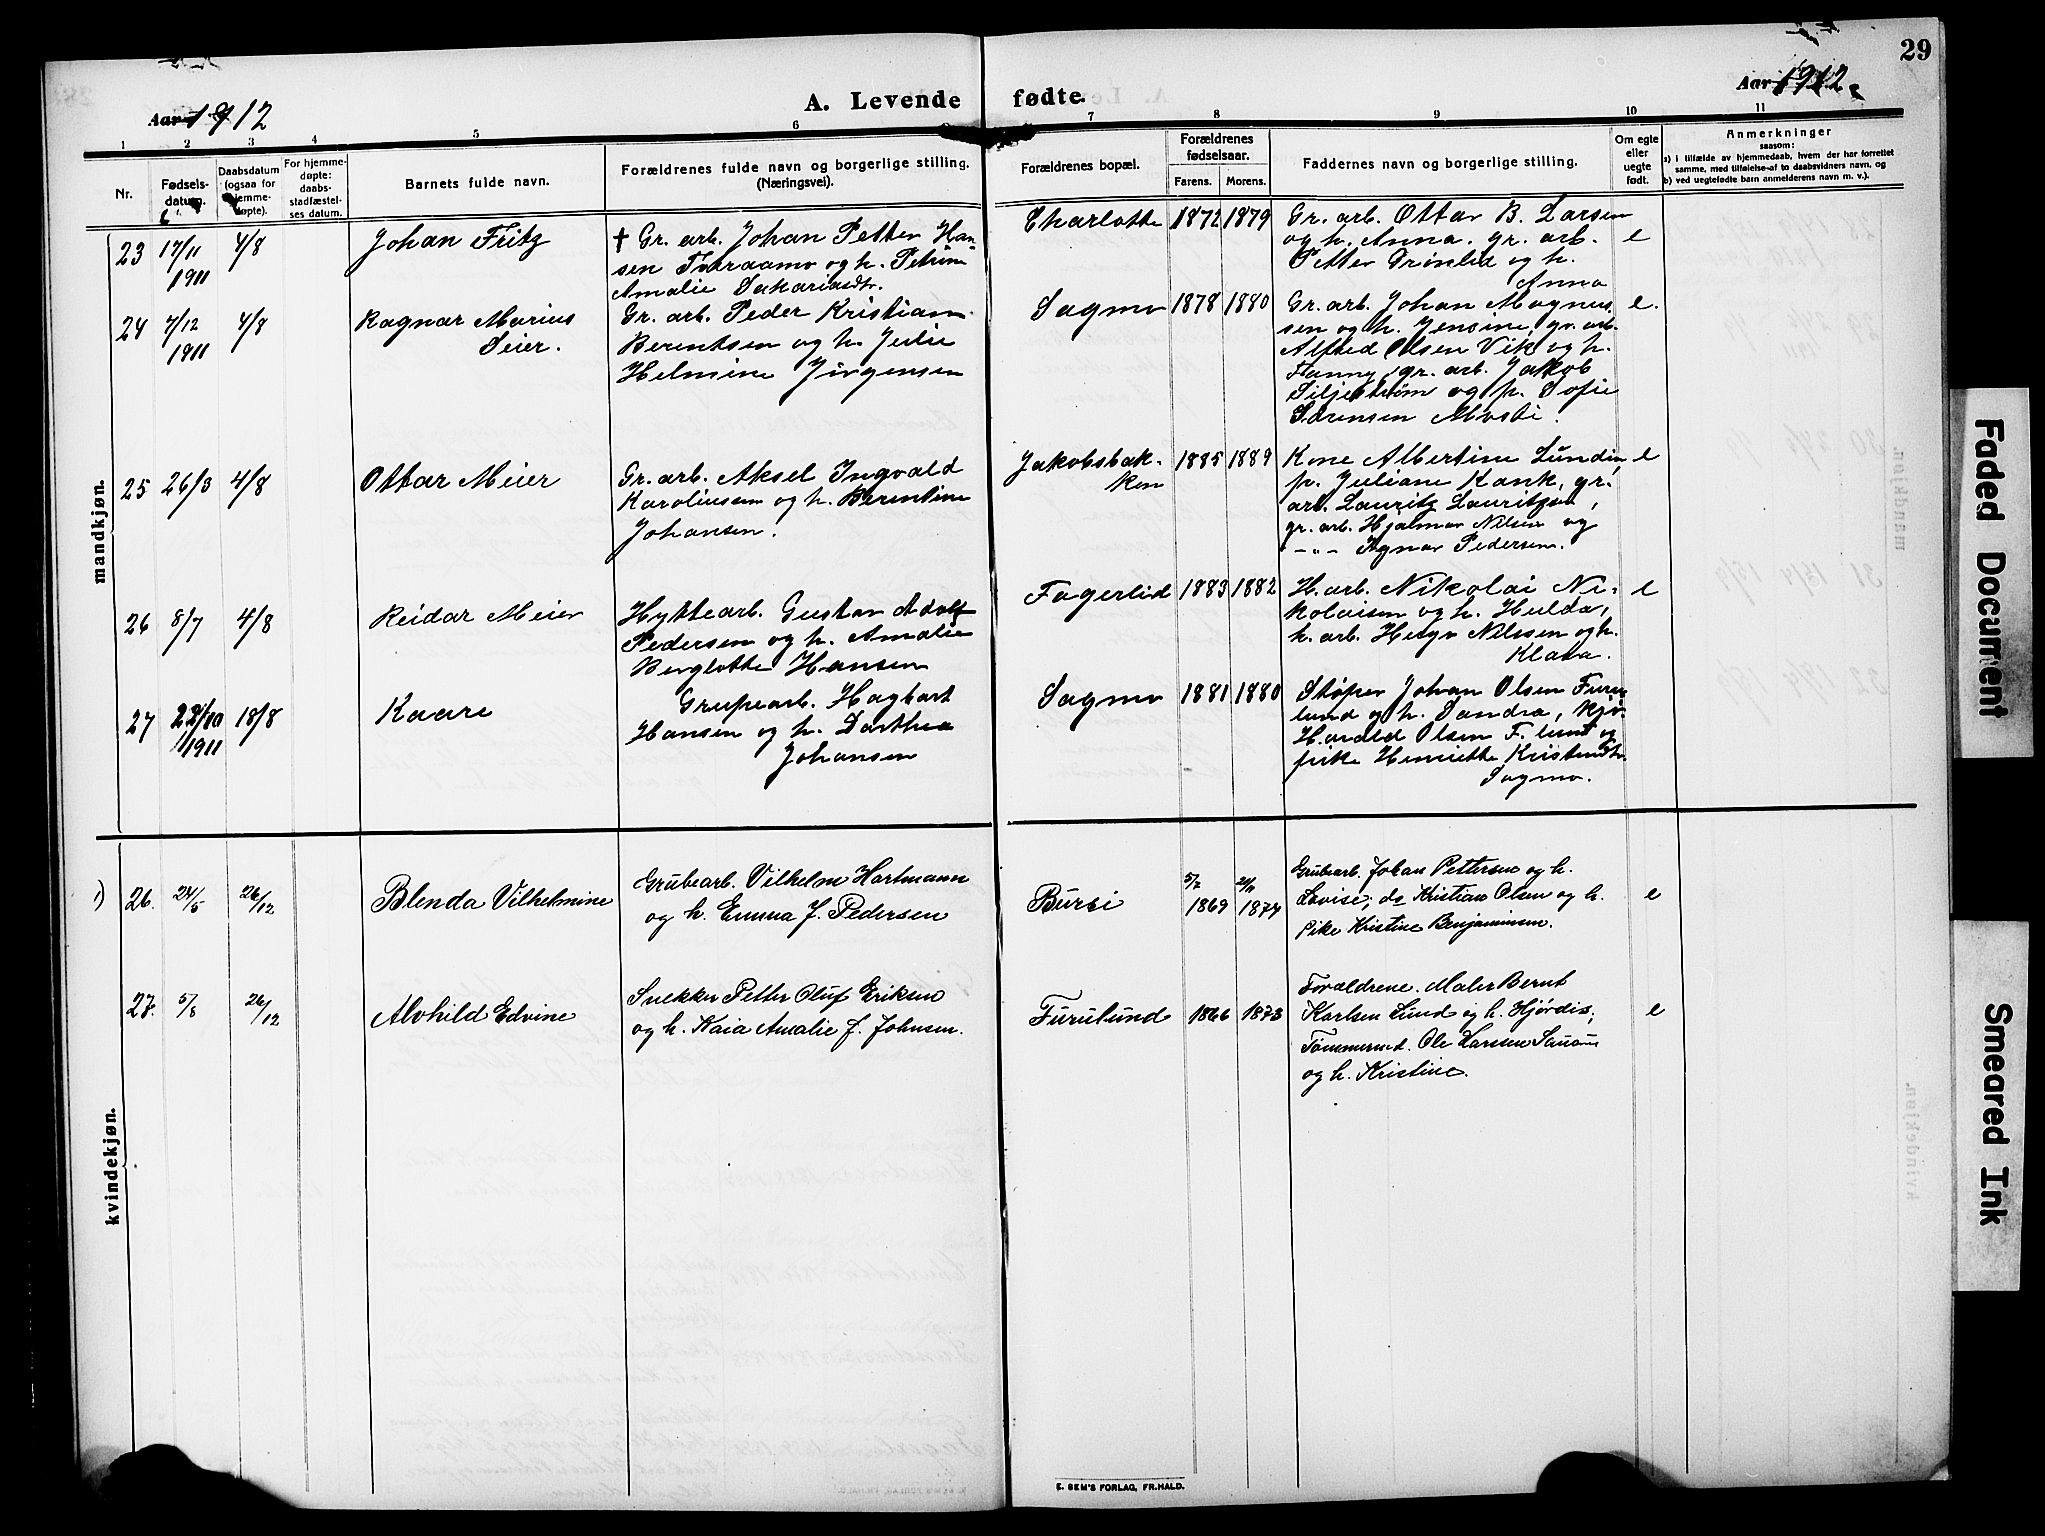 29
Aar 1912
A. Levende fødte.
Aar 1912.
1 2 3 4 5 6 7 8 9 10 11
Nr.
Fødsels-
datum.
Daabsdatum
(ogsaa for
hjemme-
døpte).
For hjemme-
døpte:
daabs-
stadfæstel-
ses datum.
Barnets fulde navn.
Forældrenes fulde navn og borgerlige stilling.
(Næringsvei).
Forældrenes bopæl.
Forældrenes
fødselsaar.
Farens. Morens.
Faddernes navn og borgerlige stilling.
Om egte
eller
uegte
født.
Anmerkninger
saasom:
a) i tilfælde av hjemmedaab, hvem der har forrettet
samme, med tilføielse af to daabsvidners navn, og
b) ved uegtefødte barn anmelderens navn m. v.).
mandkjøn.
23 17/11 4/8 Johan Fritz
1911
† Gr. arb. Johan Petter Han-
sen Tværaamo og h. Petrine
Amalie Sakariasdtr.
Charlotte 1872 1879
Gr. arb. Ottar B. Larsen
og h. Anna. gr. arb. e
Petter Drønlid og h.
Anna
24 7/12 4/8 Ragnar Marius
1911 Seier.
Gr. arb. Peder Kristian
Berentsen og h. Julie
Helmine Jørgensen
Sagmo 1878 1880
Gr. arb. Johan Magnus- e.
sen og h. Jensine, gr. arb.
Alfred Olsen Vik og h.
Fanny, gr. arb. Jakob
Siljestrøm og p. Sofie
Sørensen Mosti.
25 26/3 4/8 Ottar Meier
Gr. arb. Aksel Ingvald
Karoliussen og h. Berentine
Johansen.
Jakobsbak-
ken 1885 1889
Kone Albertine Lundin, e
p. Juliane Kank, gr.
arb. Lauritz Lauritzen,
gr. arb. Hjalmar Nilsen og
- „ - Agnar Pedersen.
26 8/7 4/8 Reidar Meier
Hyttearb. Gustav Adolf
Pedersen og h. Amalie
Berglotte Hansen
Fagerlid 1883 1882
H. arb. Nikolai Ni- e
kolaisen og h. Hulda,
h. arb. Helge Nilssen og h.
Klara.
27 22/10 18/8 Kaare
1911
Grupearb. Hagbart
Hansen og h. Dorthea
Johansen
Sagmo 1881 1880
Støper Johan Olsen Furu
lund og h. Sandra, kjø.
Harald Olsen F. lund og
pike Henriette Kristendtr.
Sagmo.
kvindekjøn.
1) 26. 24/5 26/12 Blenda Vilhelmine
Grubearb. Vilhelm Hartmann
og h. Emma J. Pedersen
Bursi
5/2 1869 1874
Grubearb. Johan Pettersen og h.
Lovise; do Kristian Olsen og h. e
Pike Kristine Benjaminsen.
27. 5/8 26/12 Alvhild Edvine
Snekker Petter Oluf Eriksen
og h. Kaia Amalie J. Johnsen.
Furulund 1866 1873
Forældrene. Maler Bernt
Karlsen Lund og h. Hjørdis; e
Tømmermd. Ole Larssen
og h. Kristine.
E. SEM'S FORLAG, FR.HALD.
Faded Document
Smeared Ink